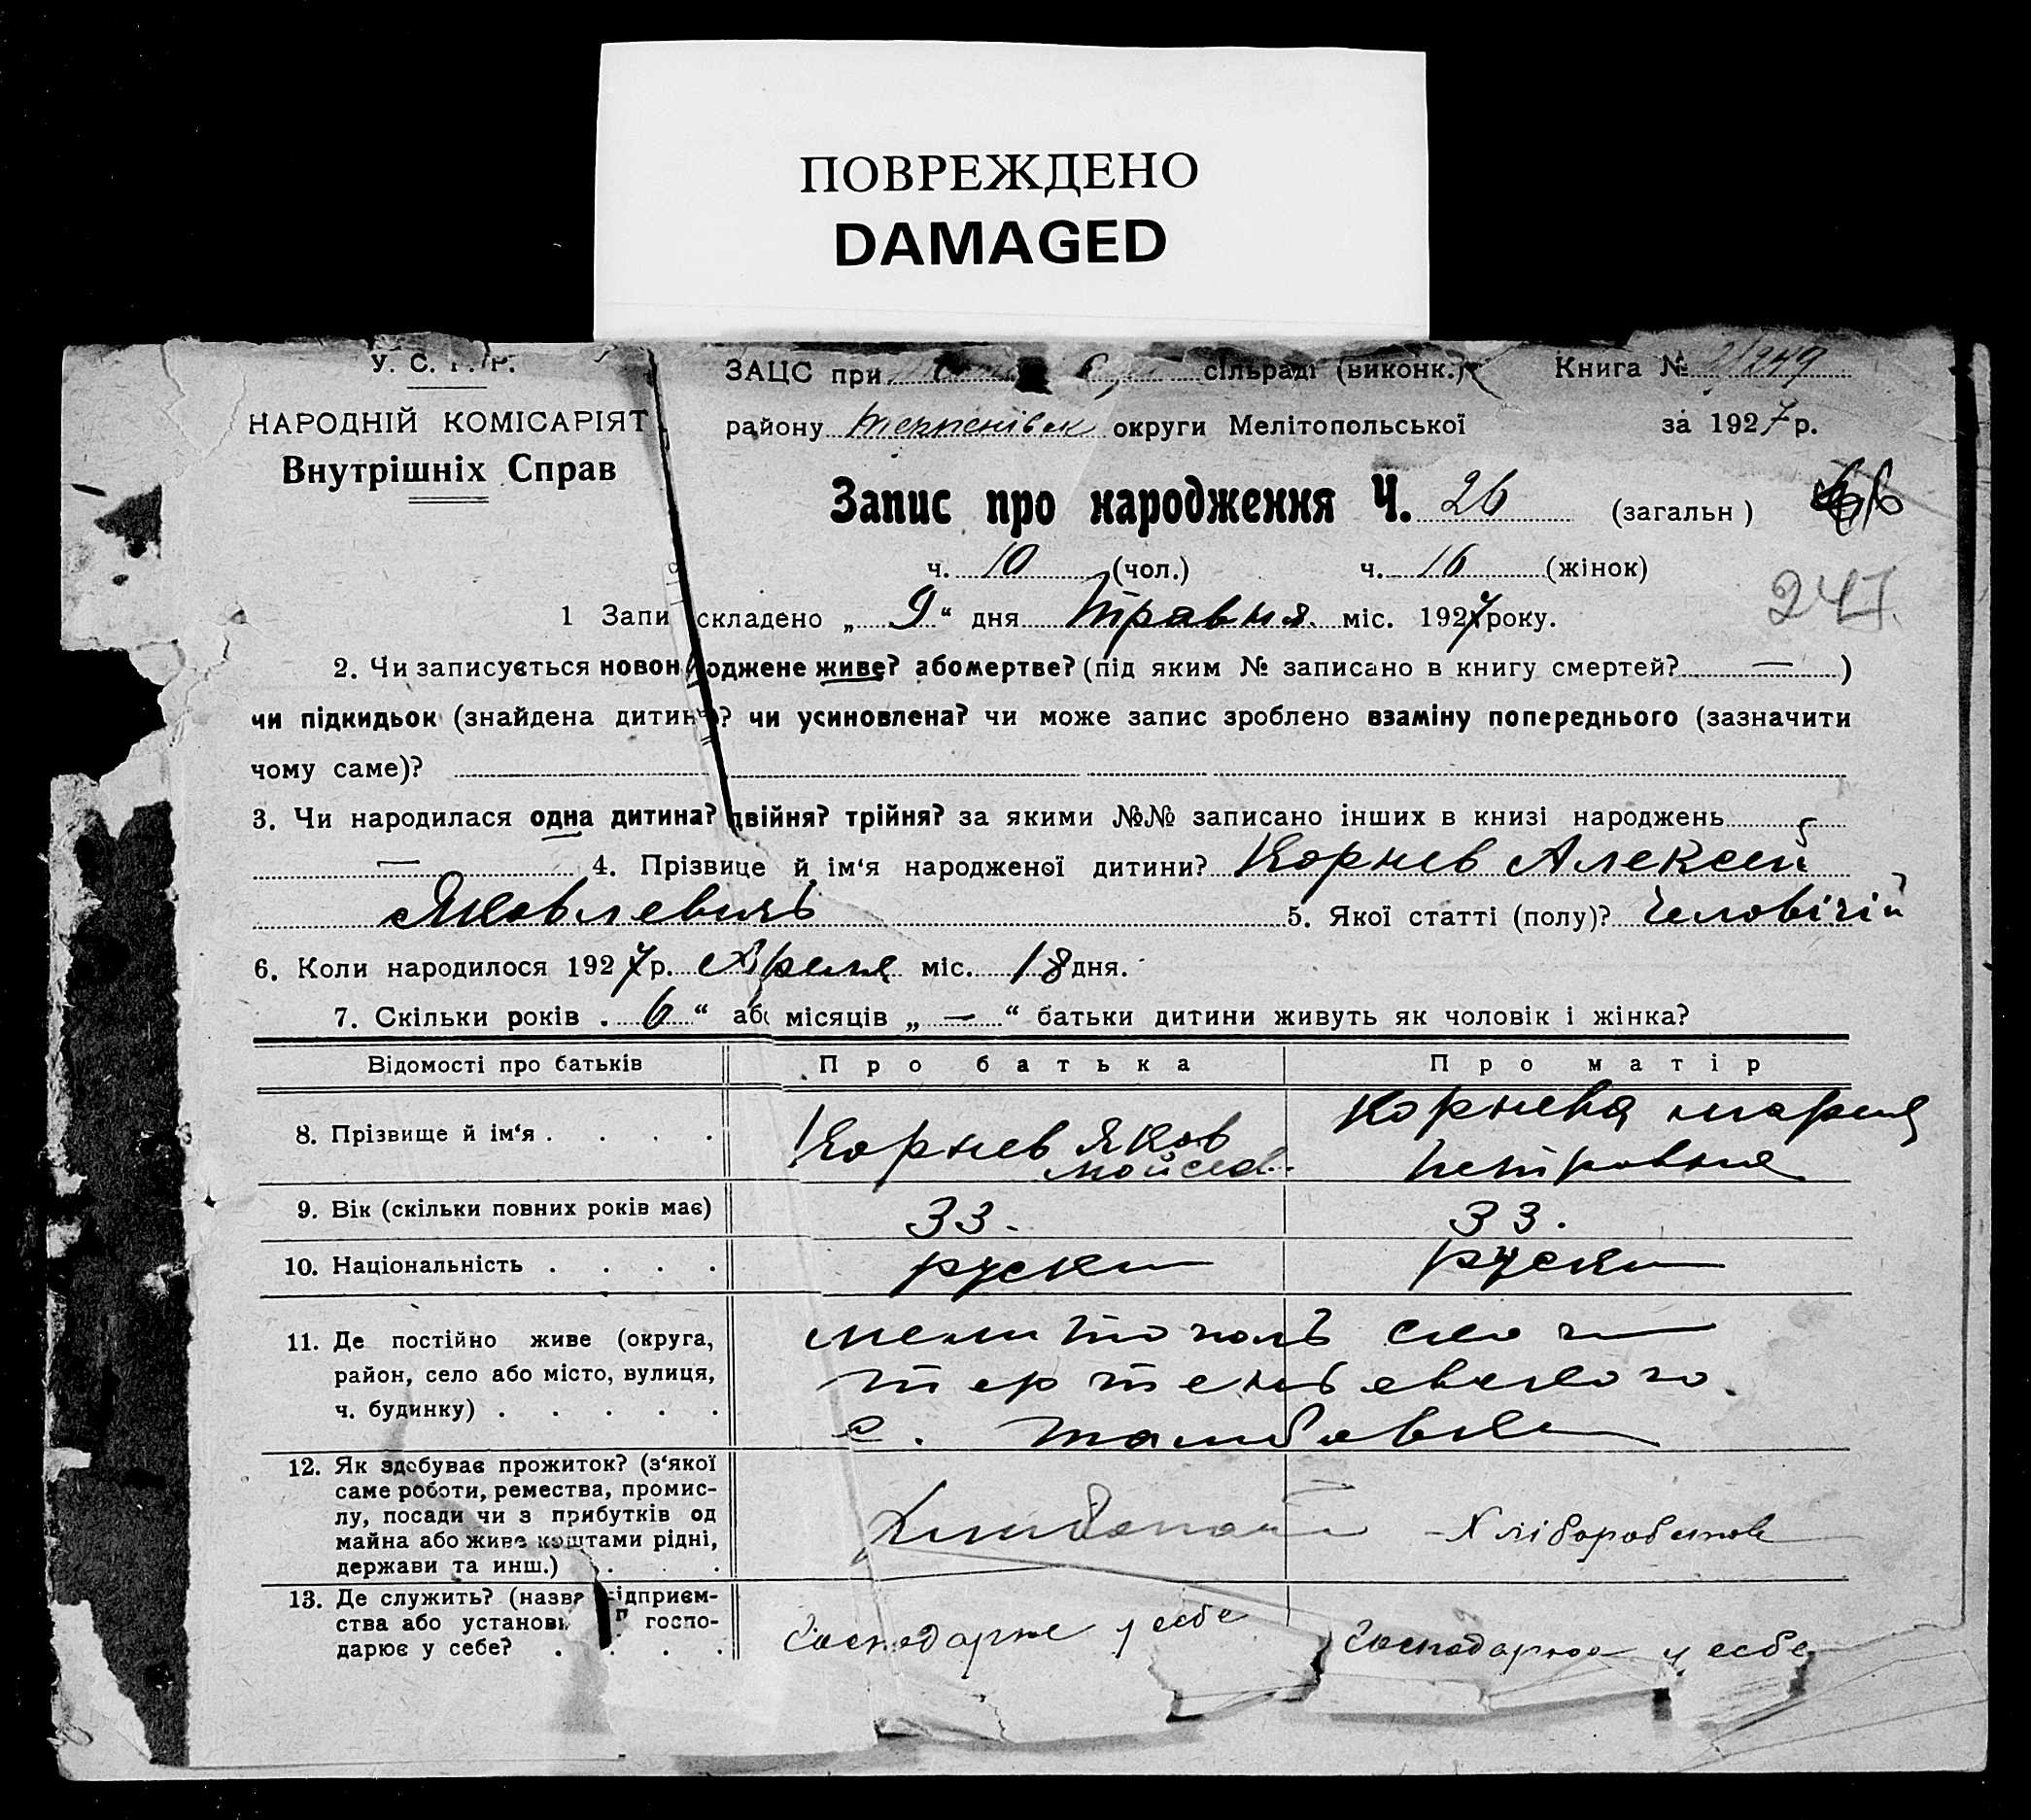 ПОВРЕЖДЕНО
DAMAGED
У. С. Р. Р.
НАРОДНІЙ КОМІСАРІЯТ
Внутрішніх Справ
ЗАЦС при сільраді (виконк.) Книга № 249
району округи Мелітопольської за 1927 р.
Запис про народження Ч. 26 (загальн)
ч. 10 (чол.) ч. 16 (жінок)
247
1 Запи складено „ 9 “ дня Травня міс. 1927 року.
2. Чи записується новон оджене живе? або мертве? (під яким № записано в книгу смертей? — )
чи підкидьок (знайдена дитин )? чи усиновлена? чи може запис зроблено взаміну попереднього (зазначити
чому саме)?
3. Чи народилася одна дитина? двійня? трійня? за якими №№ записано інших в книзі народжень
— 4. Прізвище й ім‘я народженої дитини? Корнев Алексей
Яковлевичь 5. Якої статті (полу)? Человічій
6. Коли народилося 1927 р. Апреля міс. 18 дня.
7. Скільки років „ 6 “ або місяців „ — “ батьки дитини живуть як чоловік і жінка?
Відомості про батьків Про батька Про матір
8. Прізвище й ім‘я . . . . Корнев Яков Мойсеев. Корнева Мария Петровна
9. Вік (скільки повних років має) 33. 33.
10. Національність . . . . руски руски
11. Де постійно живе (округа, Мелитополь
район, село або місто, вулиця,
ч. будинку) . . . . . с. Тамбовка
12. Як здобуває прожиток? (з‘якої
саме роботи, ремества, промис-
лу, посади чи з прибутків од
майна або живе коштами рідні,
держави та инш.) . . . Хлібороб
13. Де служить? (назва підприєм-
ства або установи, п господ-
дарює у себе? . . . . Господарює у себе Господарює у себе